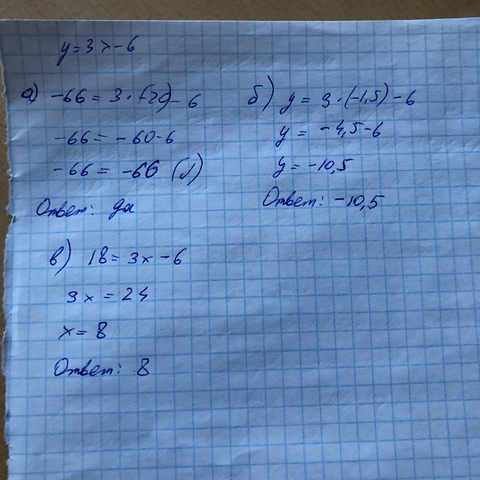 y = 3x - 6
а) -66 = 3 · (-20) - 6
-66 = -60 - 6
-66 = -66 (л)
Ответ: да
б) y = 3 · (-1,5) - 6
y = -4,5 - 6
y = -10,5
Ответ: -10,5
в) 18 = 3x - 6
3x = 24
x = 8
Ответ: 8